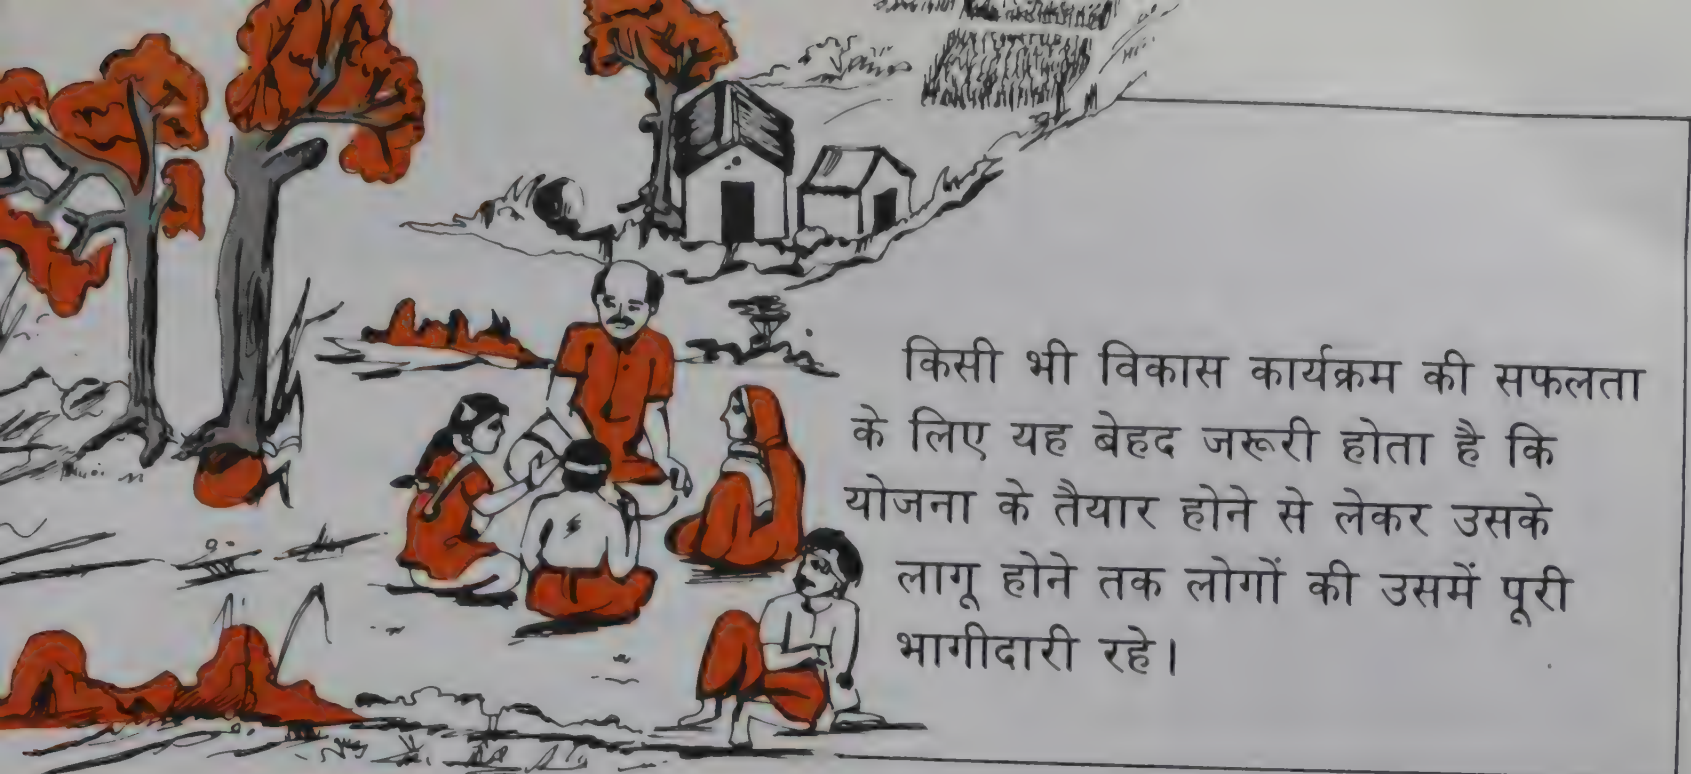 किसी भी विकास कार्यक्रम की सफलता
के लिए यह बेहद जरूरी होता है कि
योजना के तैयार होने से लेकर उसके
लागू होने तक लोगों की उसमें पूरी
भागीदारी रहे।